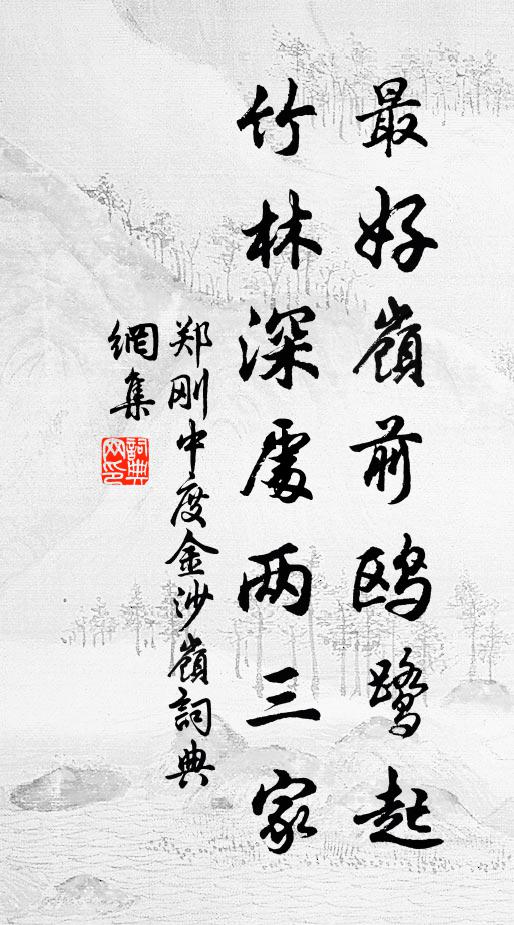 最好嶺前鸥鹭起
竹林深處两三家
郑刚中度金沙嶺詞典
網集
詞典
网印